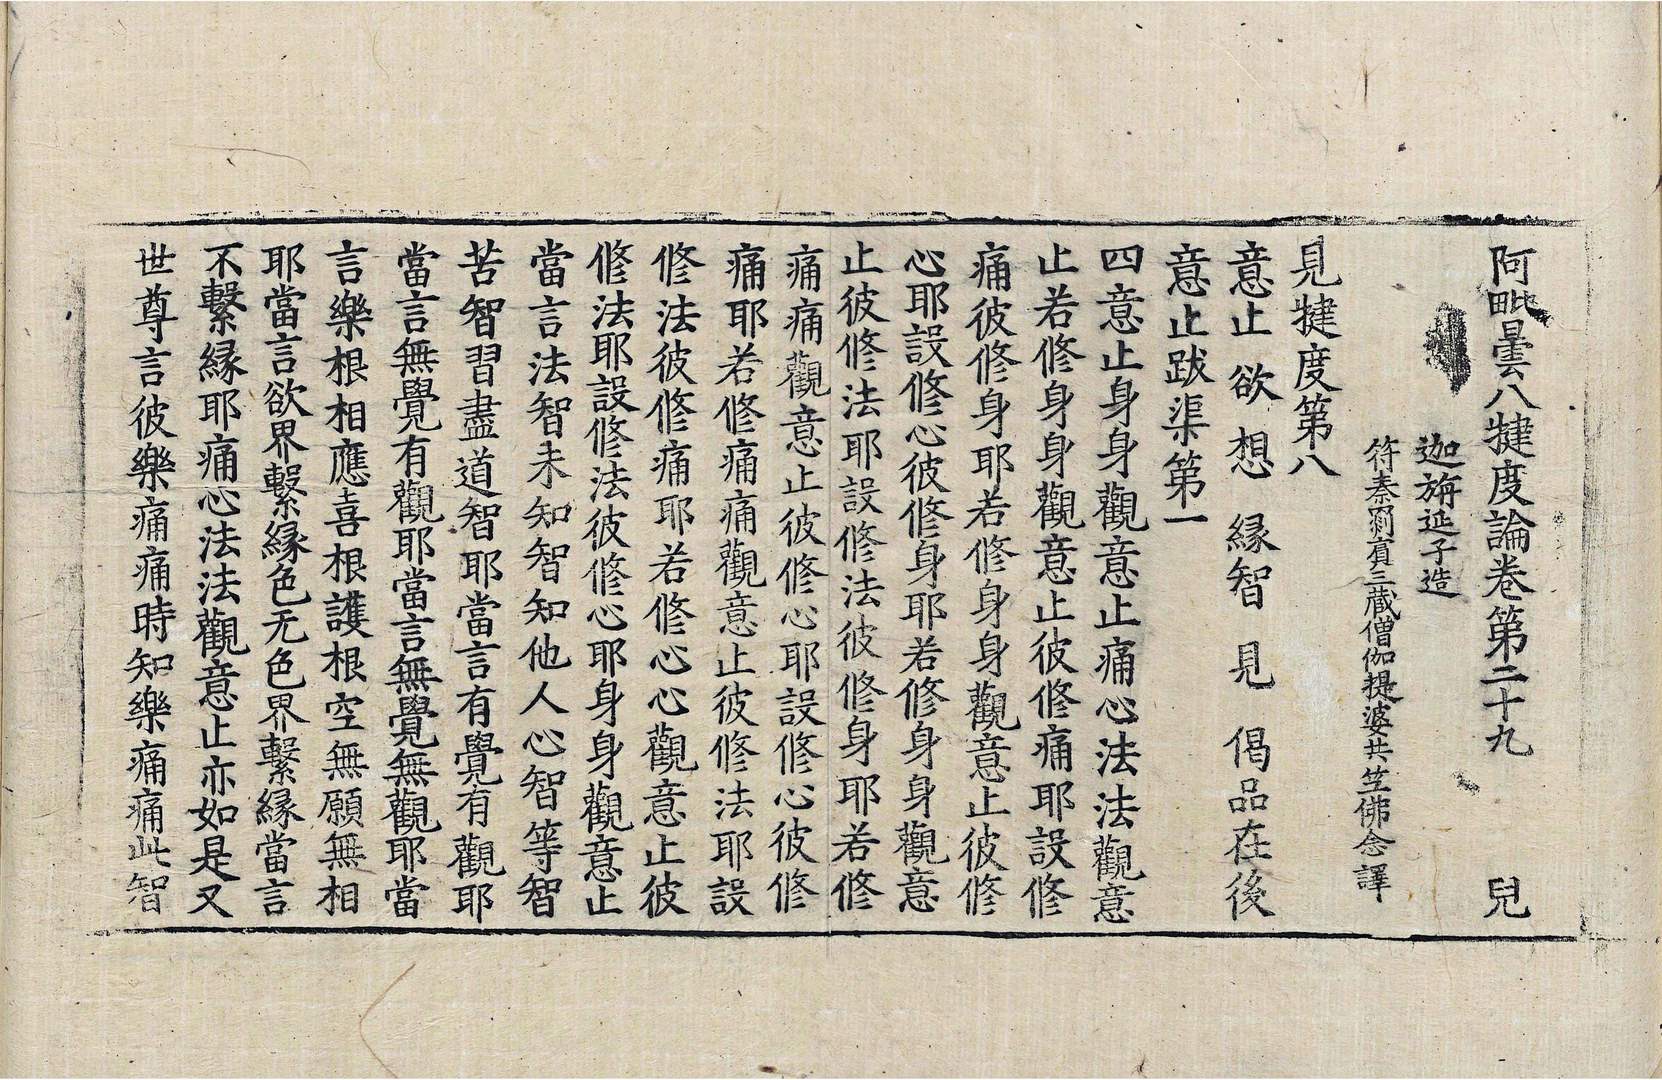 阿毗曇八犍度論卷第二十九 兒
迦旃延子造
符秦罽賓三藏僧伽提婆共笁佛念譯
見犍度第八
意止 欲 想 緣智 見 偈品在後
意止跋渠第一
四意止身身觀意止痛心法法觀意
止若修身身觀意止彼修痛耶設修
痛彼修身耶若修身身觀意止彼修
心耶設修心彼修身耶若修身身觀意
止彼修法耶設修法彼修身耶若修
痛痛觀意止彼修心耶設修心彼修
痛耶若修痛痛觀意止彼修法耶設
修法彼修痛耶若修心心觀意止彼
修法耶設修法彼修心耶身身觀意止
當言法智未知智知他人心智等智
苦智習盡道智耶當言有覺有觀耶
當言無覺有觀耶當言無覺無觀耶當
言樂根相應喜根護根空無願無相
耶當言欲界繫緣色无色界繫緣當言
不繫緣耶痛心法法觀意止亦如是又
世尊言彼樂痛痛時知樂痛痛此智